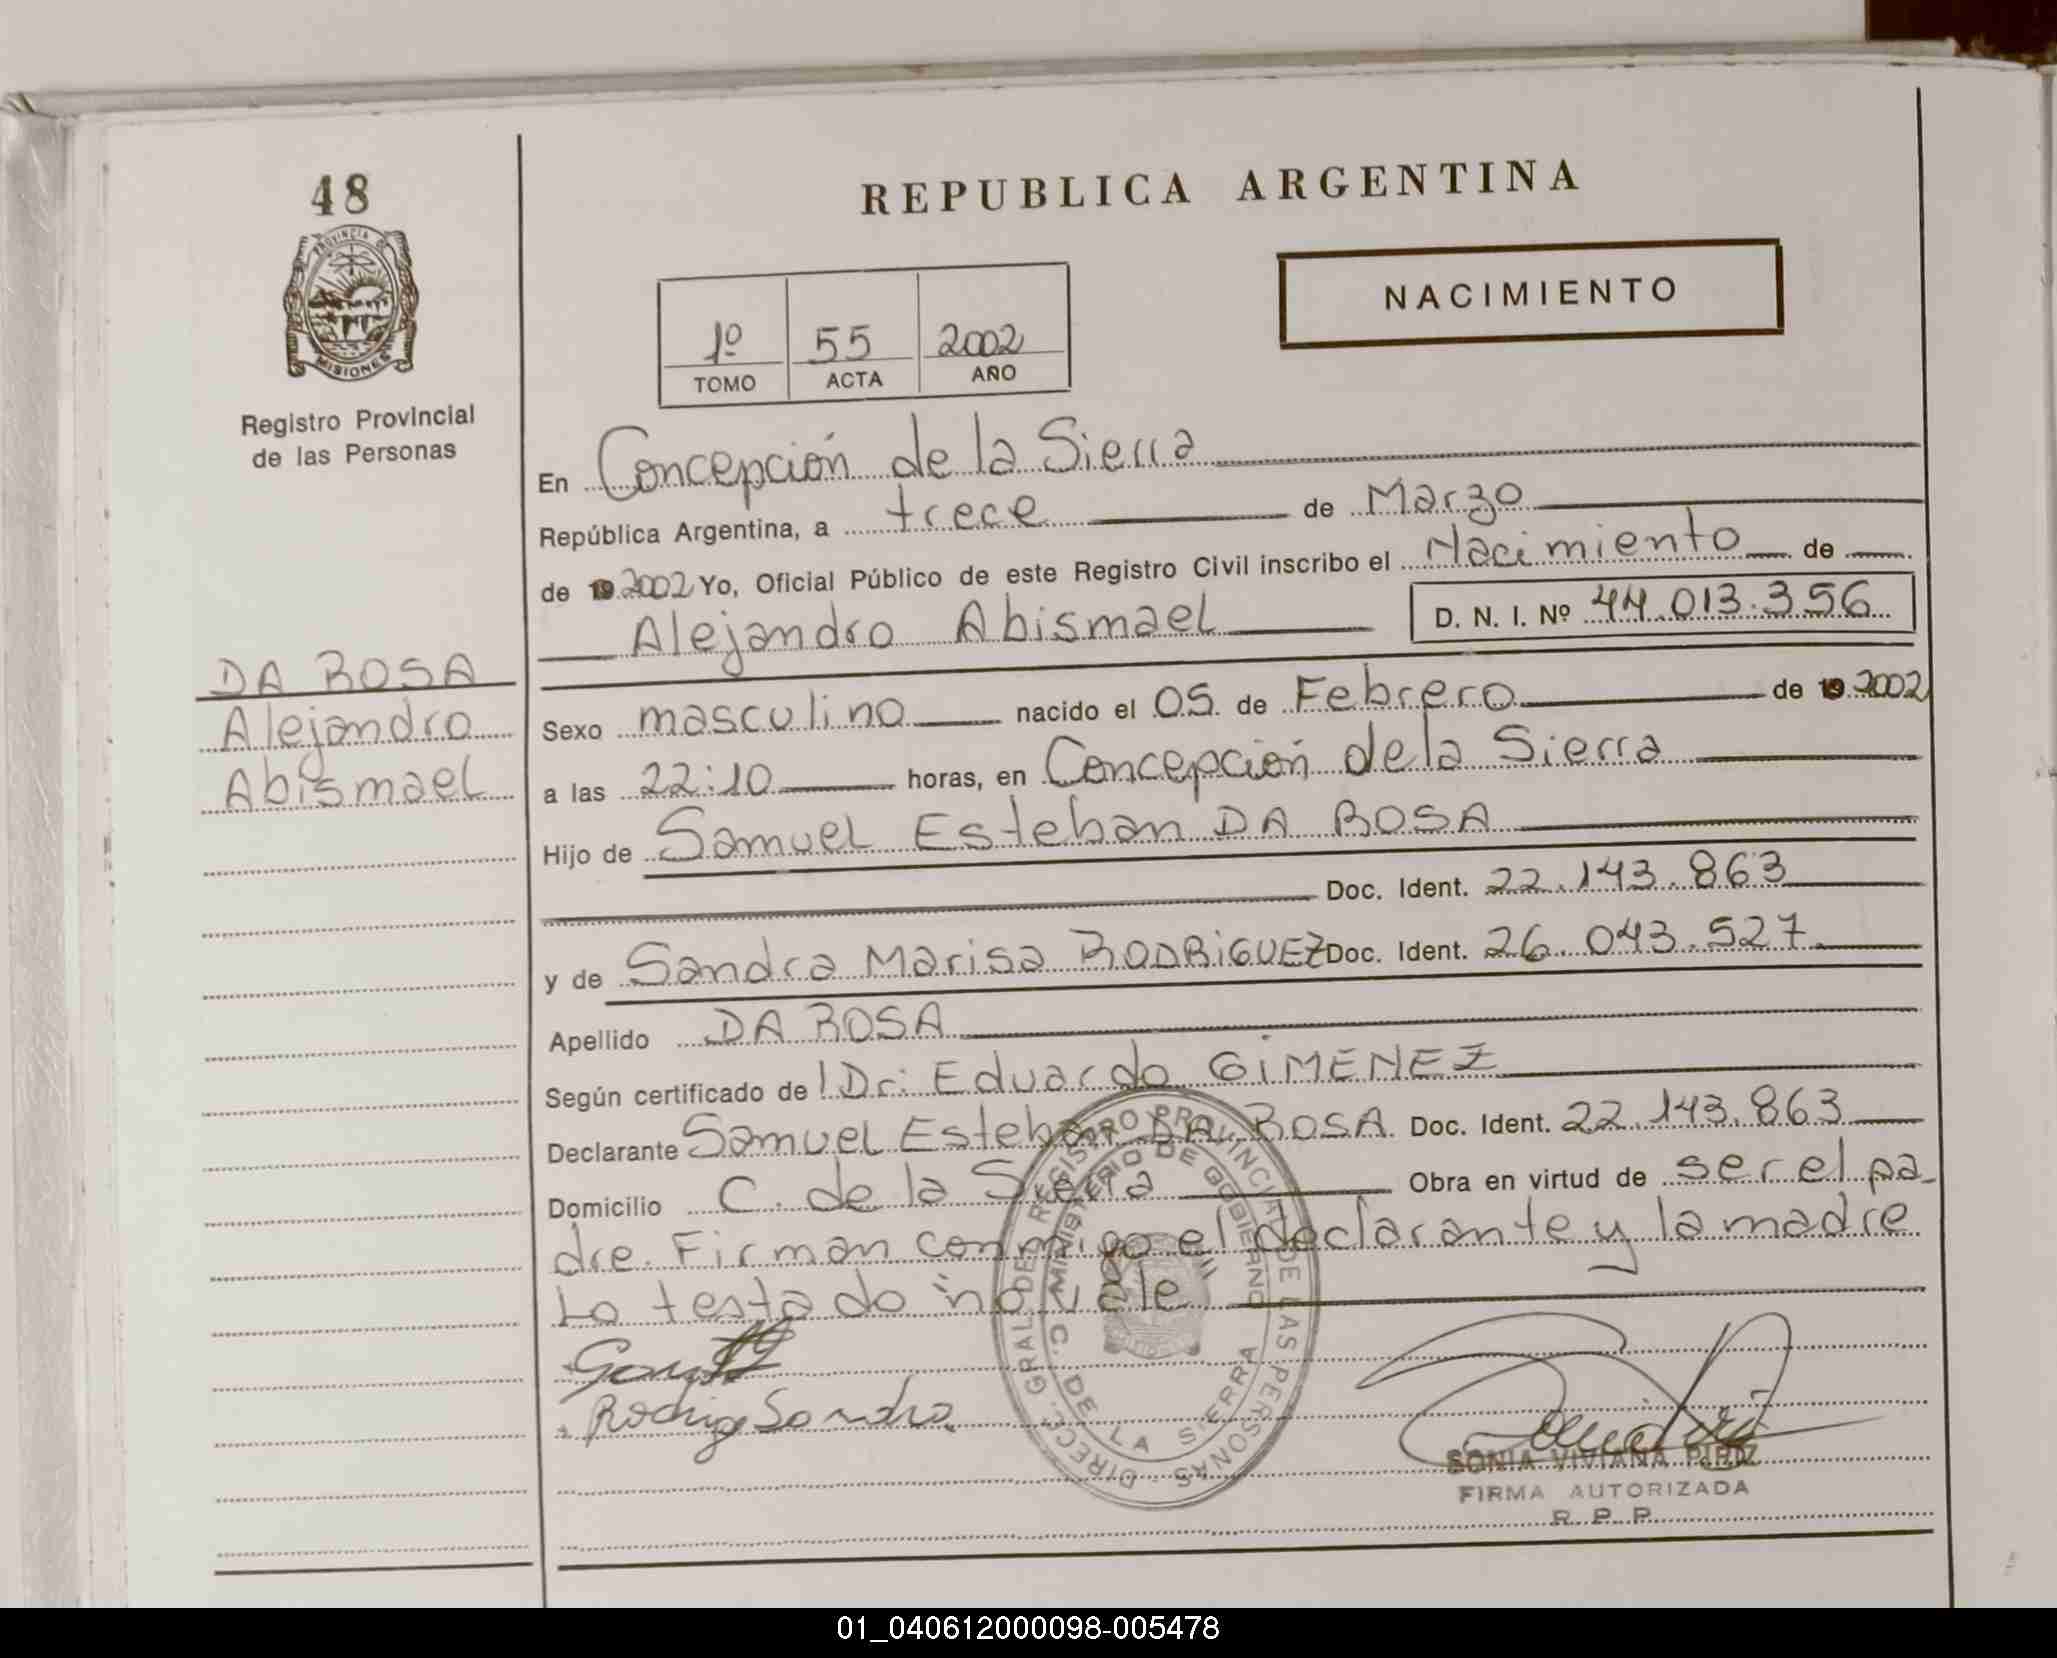 48
PROVINCIA DE
MISIONES
Registro Provincial
de las Personas
DA ROSA
Alejandro
Abismael
REPUBLICA ARGENTINA
NACIMIENTO
1º 55 2002
TOMO ACTA AÑO
En Concepción de la Sierra
República Argentina, a trece de Marzo
de 19 2002 Yo, Oficial Público de este Registro Civil inscribo el Nacimiento de
D. N. I. Nº 44.013.356
Alejandro Abismael
Sexo masculino nacido el 05 de Febrero de 19 2002
a las 22:10 horas, en Concepción de la Sierra
Hijo de Samuel Esteban DA ROSA
Doc. Ident. 22.143.863
y de Sandra Marisa RODRIGUEZ Doc. Ident. 26.043.527
Apellido DA ROSA
Según certificado de Dr: Eduardo GIMENEZ
Declarante Samuel Esteban DA ROSA Doc. Ident. 22.143.863
Domicilio C. de la Sierra Obra en virtud de ser el pa-
dre. Firman conmigo el declarante y la madre
Lo testado "no vale"
Rodrig Sandra
DIRECC. GRAL. DEL REGISTRO PROVINCIAL DE LAS PERSONAS
MINISTERIO DE GOBIERNO
C. DE LA SIERRA
SONIA VIVIANA PIRIZ
FIRMA AUTORIZADA
R. P. P.
01_040612000098-005478